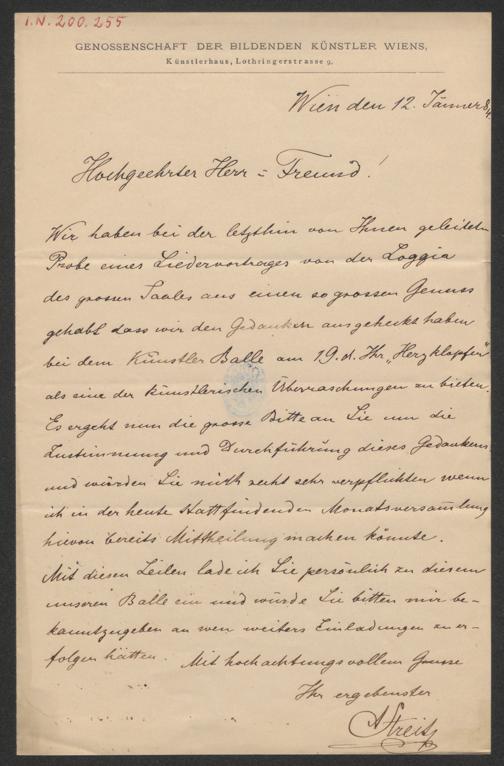 I.N. 200.255
GENOSSENSCHAFT DER BILDENDEN KÜNSTLER WIENS,
Künstlerhaus, Lothringerstrasse 9.
Wien den 12. Jänner 84
Hochgeehrter Herr = Freund!
Wir haben bei der letzthin von Ihnen geleiteten
Probe eines Liedervortrages von der Loggia
des grossen Saales aus einen so grossen Genuss
gehabt dass wir den Gedanken ausgeheckt haben
bei dem Künstler Balle am 19. d. Ihr „Herzklopfen"
als eine der künstlerischen Überraschungen zu bieten.
Es ergeht nun die grosse Bitte an Sie um die
Zustimmung und Durchführung dieses Gedankens
und würden Sie mich recht sehr verpflichten wenn
ich in der heute stattfindenden Monatsversamlung
hievon bereits Mittheilung machen könnte.
Mit diesen Zeilen lade ich Sie persönlich zu diesem
unseren Balle ein und würde Sie bitten mir be-
kanntzugeben an wen weiters Einladungen zu er-
folgen hätten. Mit hochachtungsvollem Grusse
Ihr ergebenster
AStreit